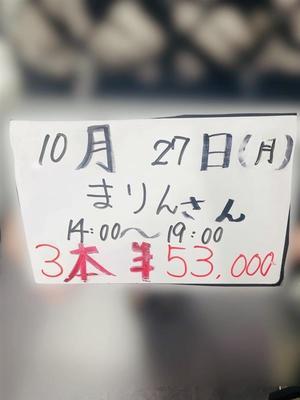 10月 27日(月)
まりんさん
14:00〜19:00
3本 ¥53,000